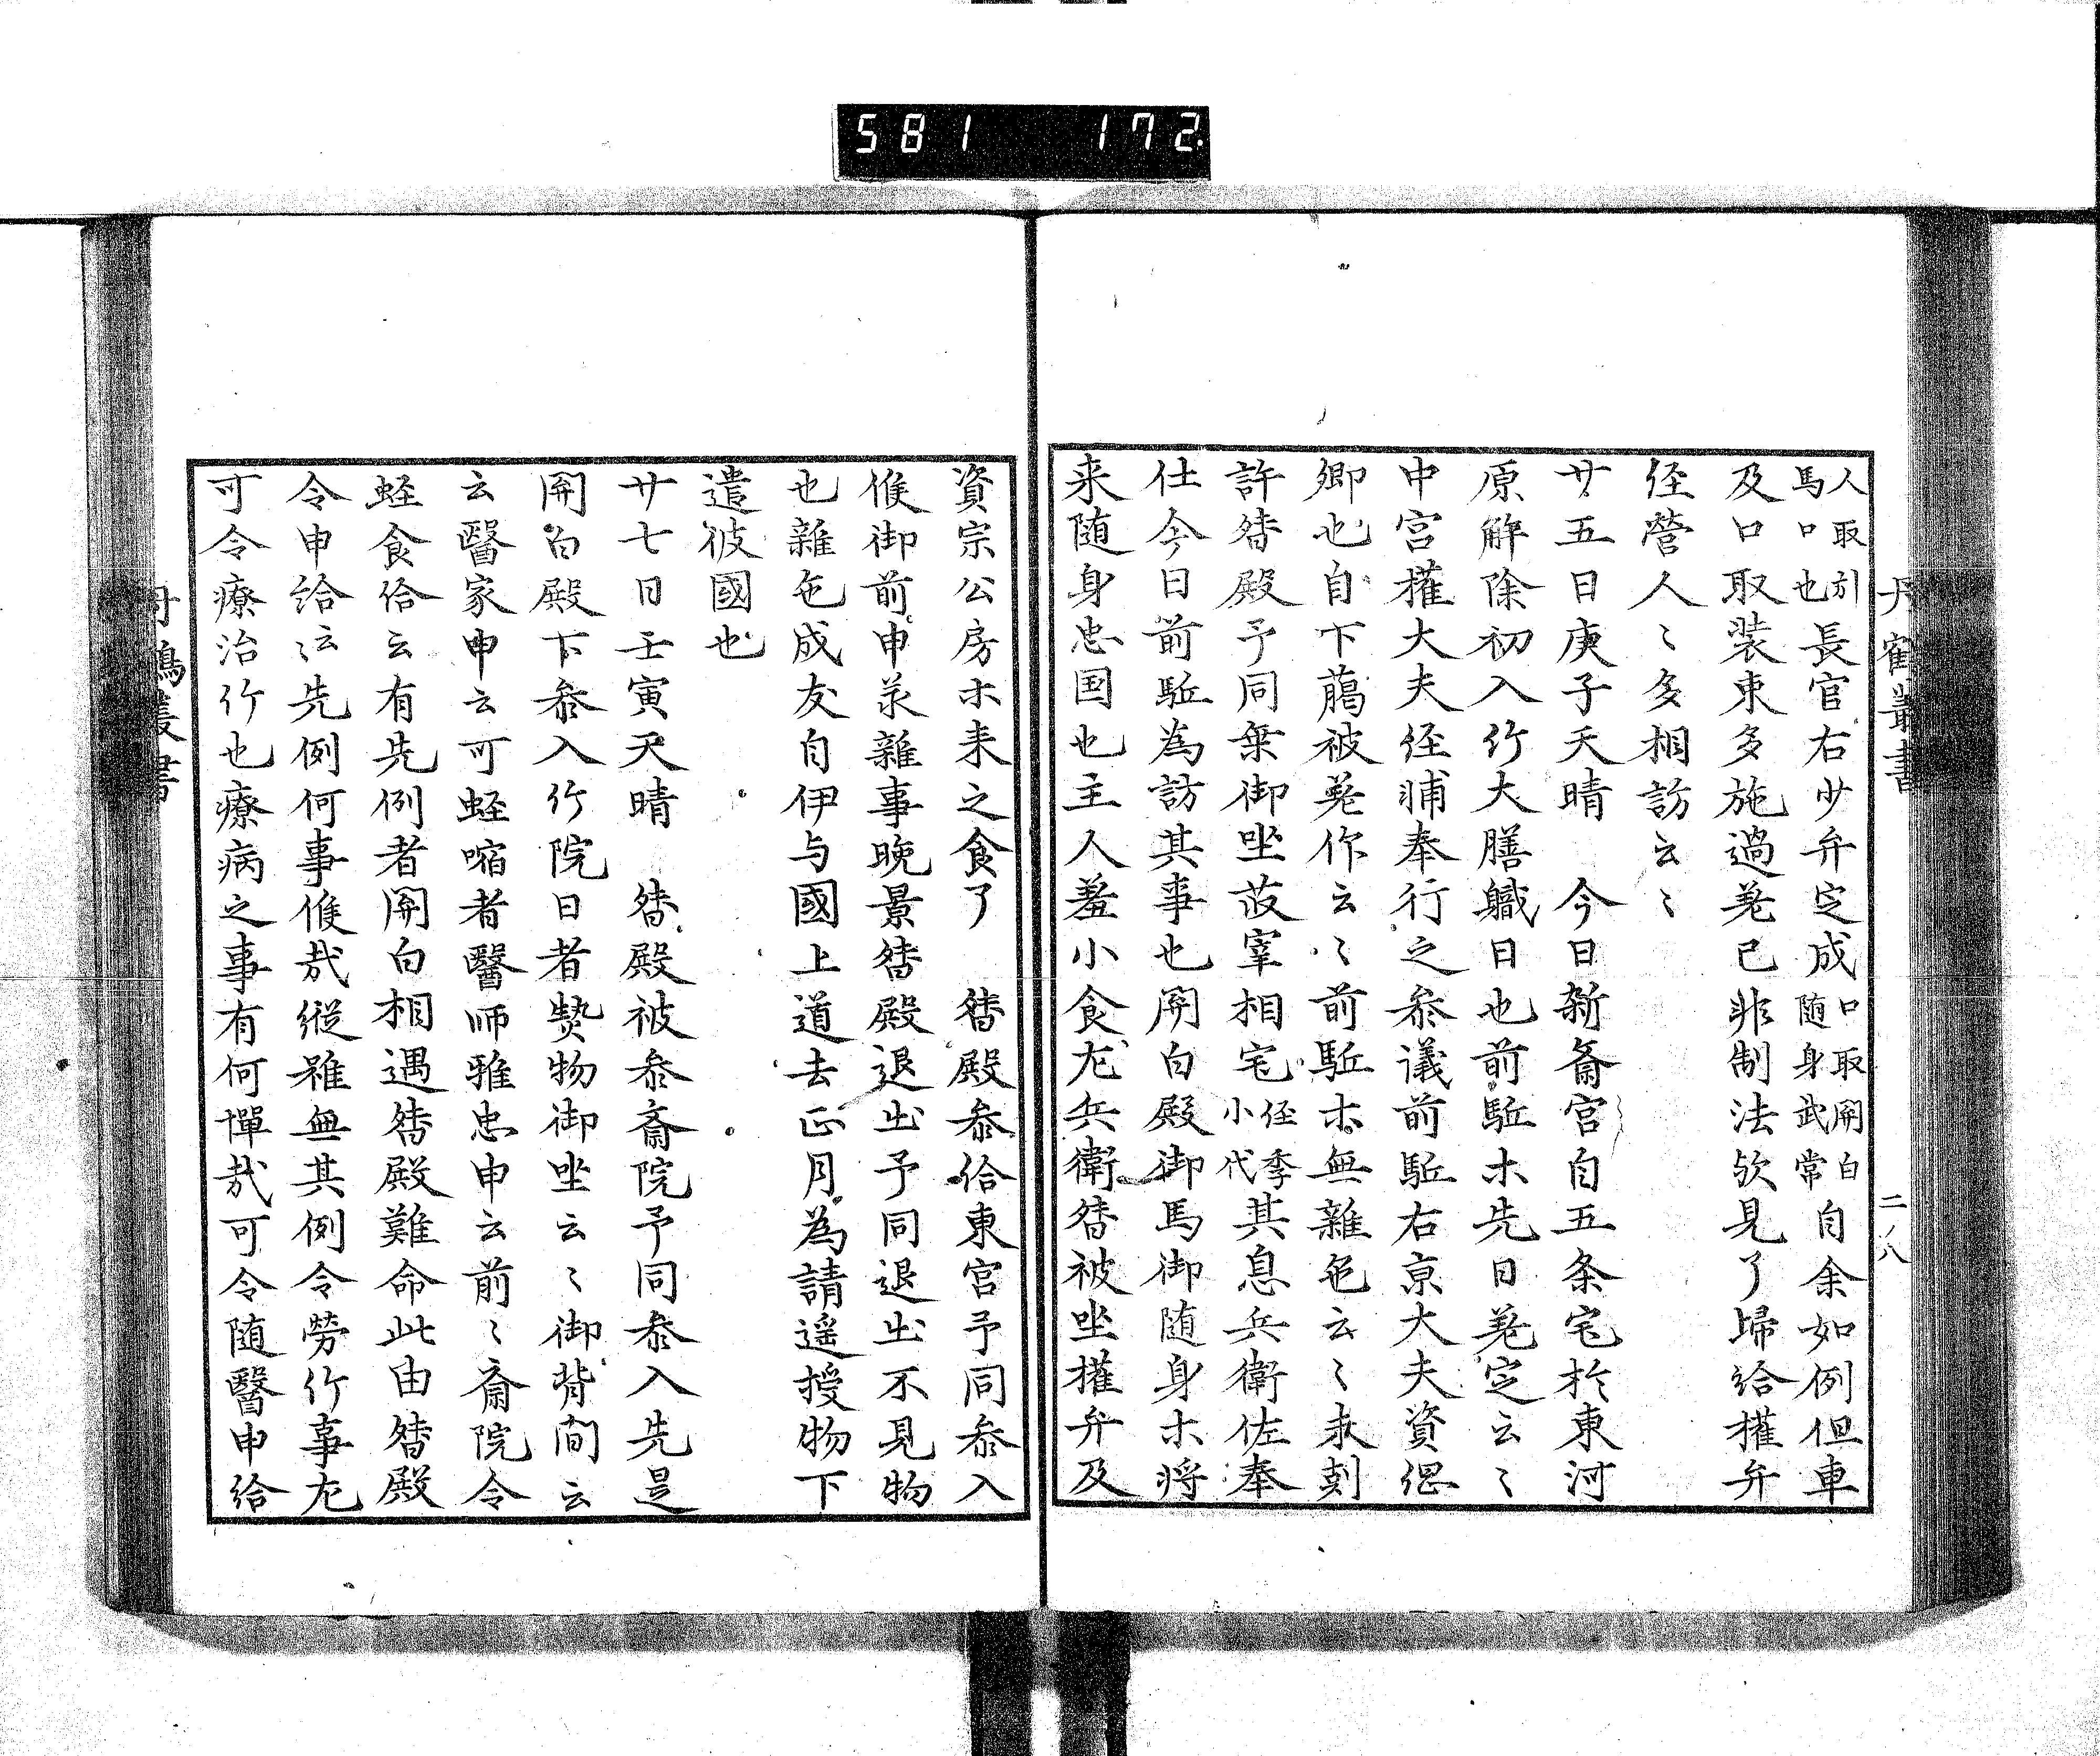 581 172
丹鶴叢書 二ノ八
人取引馬口也長官右少弁定成口取開白随身武常自余如例但車
及口取装束多施過差已非制法欤見了歸給権弁
経營人〻多相訪云〻
廿五日庚子天晴 今日新齋宮自五条宅於東河
原解除初入行大膳職日也前駈木先日差定云〻
中宮権大夫経浦奉行之参議前駈右京大夫資偲
卿也自下﨟被差作云〻前駈木無雜色云〻未剋
許督殿予同乗御坐故宰相宅経季小代其息兵衛佐奉
仕今日前駈為訪其事也開白殿御馬御随身木将
来随身忠国也主人羞小食左兵衛督被坐権弁及
資宗公房木来之食了 督殿参給東宮予同参入
候御前申承雜事晩景督殿退出予同退出不見物
也雜色成友自伊与國上道去正月為請遥授物下
遣彼國也
廿七日壬寅天晴 督殿被参齋院予同参入先是
開白殿下参入行院日者贄物御坐云〻御背間云
云醫家申云可蛭喰者醫师雅忠申云前〻齋院令
蛭食給云有先例者開白相遇督殿難命此由督殿
令申給云〻先例何事候哉縦雖無其例令勞行事尤
可令療治行也療病之事有何憚哉可令随醫申給
丹鶴叢書